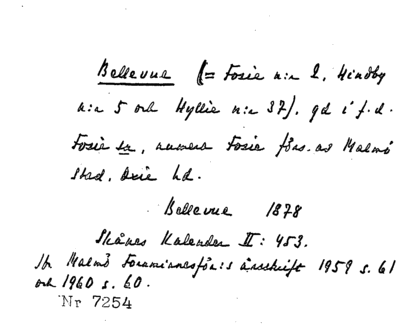 Bellevue (= Fosie n:r 2, Hindby
n:r 5 och Hyllie n:r 37), gd i f.d.
Fosie sn, numera Fosie förs. av Malmö
stad, Oxie hd.
Bellevue 1878
Skånes Kalender II: 453.
Jfr Malmö Fornminnesför:s årsskrift 1959 s. 61
och 1960 s. 60.
Nr 7254